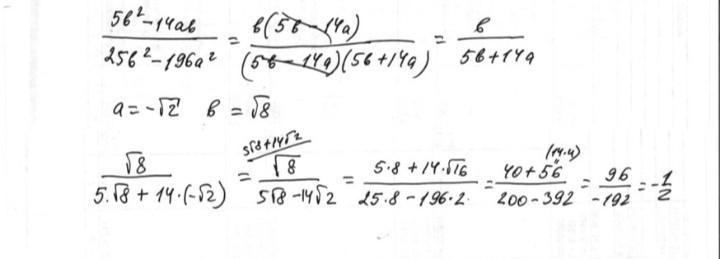 (5в² - 14ав)/(25в² - 196а²) = в(5в - 14а)/((5в - 14а)(5в + 14а)) = в/(5в + 14а)
а = -√2 в = √8
√8/(5·√8 + 14·(-√2)) = √8/(5√8 - 14√2) 5√8 + 14√2 = (5·8 + 14·√16)/(25·8 - 196·2) = (40 + 56)/(200 - 392) (14·4) = 96/-192 = -1/2